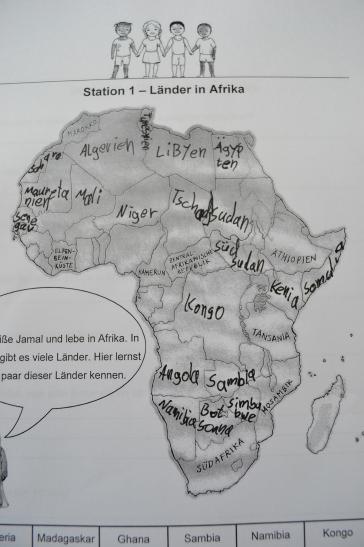 Station 1 – Länder in Afrika
MAROKKO
Tunesien
Algerien
LiByen
Ägyp
ten
Sahara
Maureta
nien
Mali
Niger
Tschad
Sudan
Sene
gal
ELFEN-
BEIN-
KÜSTE
KAMERUN
ZENTRAL-
AFRIKANISCHE
REPUBLIK
süd
sudan
ÄTHIOPIEN
Kenia
Somalia
Kongo
TANSANIA
Angola
Sambia
MOSAMBIK
Namibia
Bot
sowna
Simba
bwe
SÜDAFRIKA
iße Jamal und lebe in Afrika. In
gibt es viele Länder. Hier lernst
paar dieser Länder kennen.
eria
Madagaskar
Ghana
Sambia
Namibia
Kongo